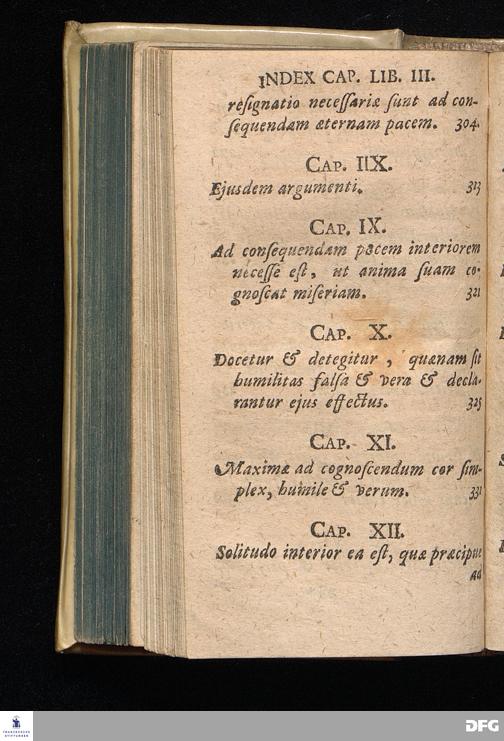 INDEX CAP. LIB. III.
resignatio necessariæ sunt ad con-
sequendam æternam pacem. 304.
CAP. IIX.
Ejusdem argumenti. 313
CAP. IX.
Ad consequendam pacem interiorem
necesse est, ut anima suam co-
gnoscat miseriam. 321
CAP. X.
Docetur & detegitur, quænam sit
humilitas falsa & vera & decla-
rantur ejus effectus. 325
CAP. XI.
Maximæ ad cognoscendum cor sim-
plex, humile & verum. 331
CAP. XII.
Solitudo interior ea est, quæ præcipue
ad
FRANCKESCHE
STIFTUNGEN
DFG